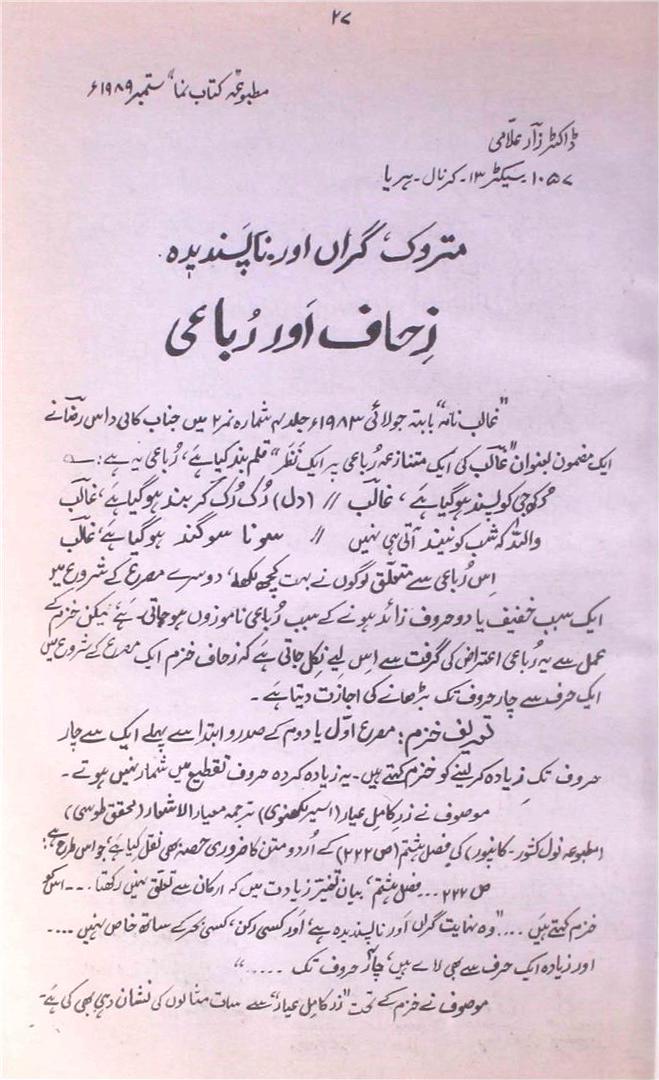 ۲۷
مطبوعہ "کتاب نما" ستمبر ۱۹۸۹ء
ڈاکٹر زآر علّامی
۱۰۵۷۔ سیکٹر ۱۳۔ کرنال۔ ہریا
متروک، گراں اور ناپسندیدہ
زِحاف اَور رُباعی
"غالب نامہ" بابتہ جولائی ۱۹۸۳ء جلد ۴ شمارہ نمبر ۲ میں جناب کالی داس رضا نے
ایک مضمون بعنوان "غالب کی ایک متنازعہ رُباعی پر ایک نَظَر" قلم بند کیا ہے، رُباعی یہ ہے:۔
دُکھ جی کو پسند ہو گیا ہے، غالبؔ // (دل) رُک رُک کر بند ہو گیا ہے، غالبؔ
واللہ کہ شب کو نیند آتی ہی نہیں // سونا سوگند ہو گیا ہے، غالبؔ
اِس رُباعی سے متعلّق لوگوں نے بہت کچھ لکھا، دوسرے مصرع کے شروع میں
ایک سبب خفیف یا دو حروف زائد ہونے کے سبب رُباعی ناموزوں ہو جاتی ہے، لیکن خزم کے
عمل سے یہ رُباعی اعتراض کی گرفت سے اِس لیے نِکل جاتی ہے کہ زحاف خزم ایک مصرع کے شروع میں
ایک حرف سے چار حروف تک بڑھانے کی اجازت دیتا ہے۔
تعریف خزم: مصرع اوّل یا دوم کے صدر و ابتدا سے پہلے ایک سے چار
حروف تک زیادہ کر لینے کو خزم کہتے ہیں۔ یہ زیادہ کردہ حروف تقطیع میں شمار نہیں ہوتے۔
موصوف نے زرِ کامل عیار (اسیر لکھنوی) ترجمہ معیار الاشعار (محقق طوسی)
(مطبوعہ نول کشور۔ کانپور) کی فصل ہشتم (ص ۲۲۲) کے اُردو متن کا ضروری حصہ بھی نقل کیا ہے، جو اس طرح ہے:
ص ۲۲۲... فصل ہشتم، بیان تغیّر زیادت میں کہ ارکان سے تعلق نہیں رکھتا... اس کو
خزم کہتے ہیں .... "وہ نہایت گراں اور ناپسندیدہ ہے، اور کسی رکن، کسی بحر کے ساتھ خاص نہیں ....
اور زیادہ ایک حرف سے بھی لائے ہیں، چار حروف تک ....."
موصوف نے خزم کے تحت "زر کامل عیار" سے سات مثالوں کی نشان دہی بھی کی ہے۔